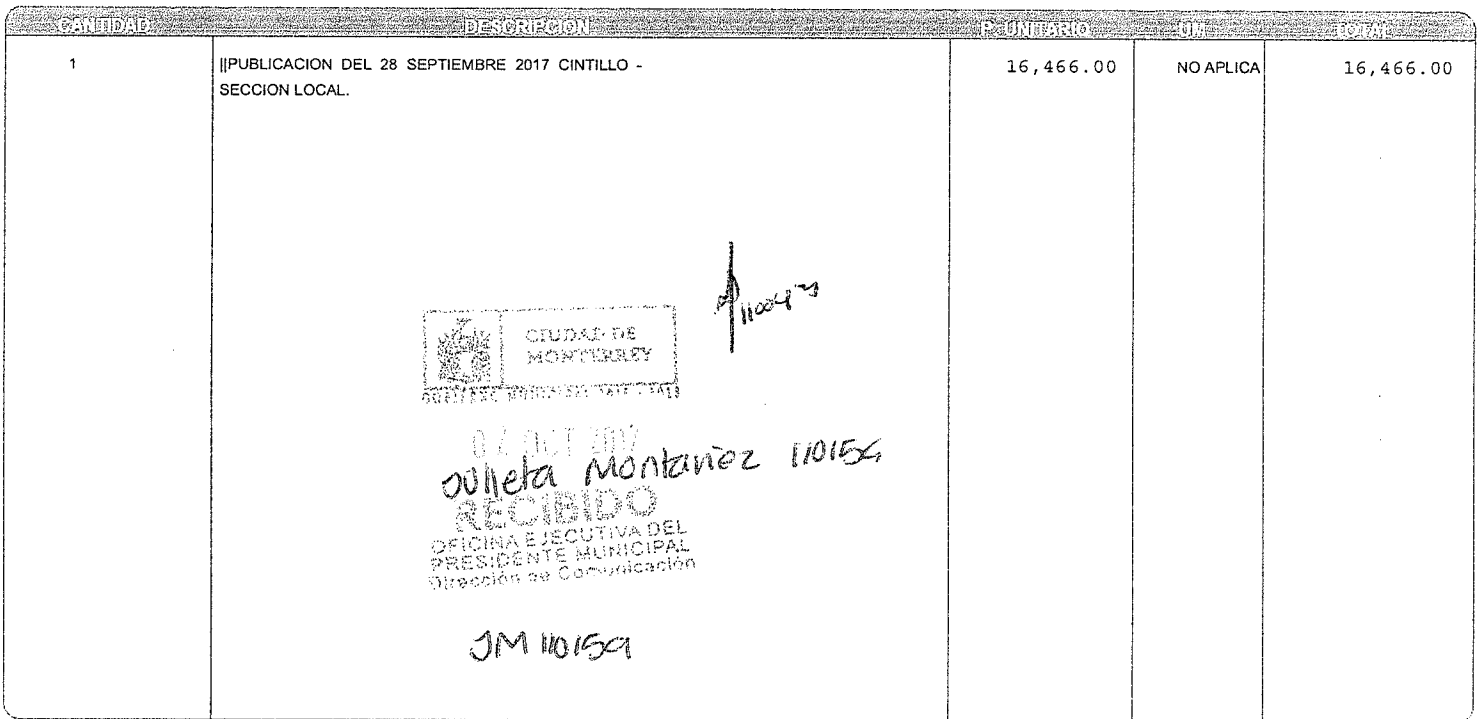 CANTIDAD DESCRIPCION P. UNITARIO UM TOTAL
1 ||PUBLICACION DEL 28 SEPTIEMBRE 2017 CINTILLO - 16,466.00 NO APLICA 16,466.00
SECCION LOCAL.
CIUDAD DE
MONTERREY
OCT
Julieta Montañez 110159
RECIBIDO
OFICINA EJECUTIVA DEL
PRESIDENTE MUNICIPAL
Dirección de Comunicación
JM 110159